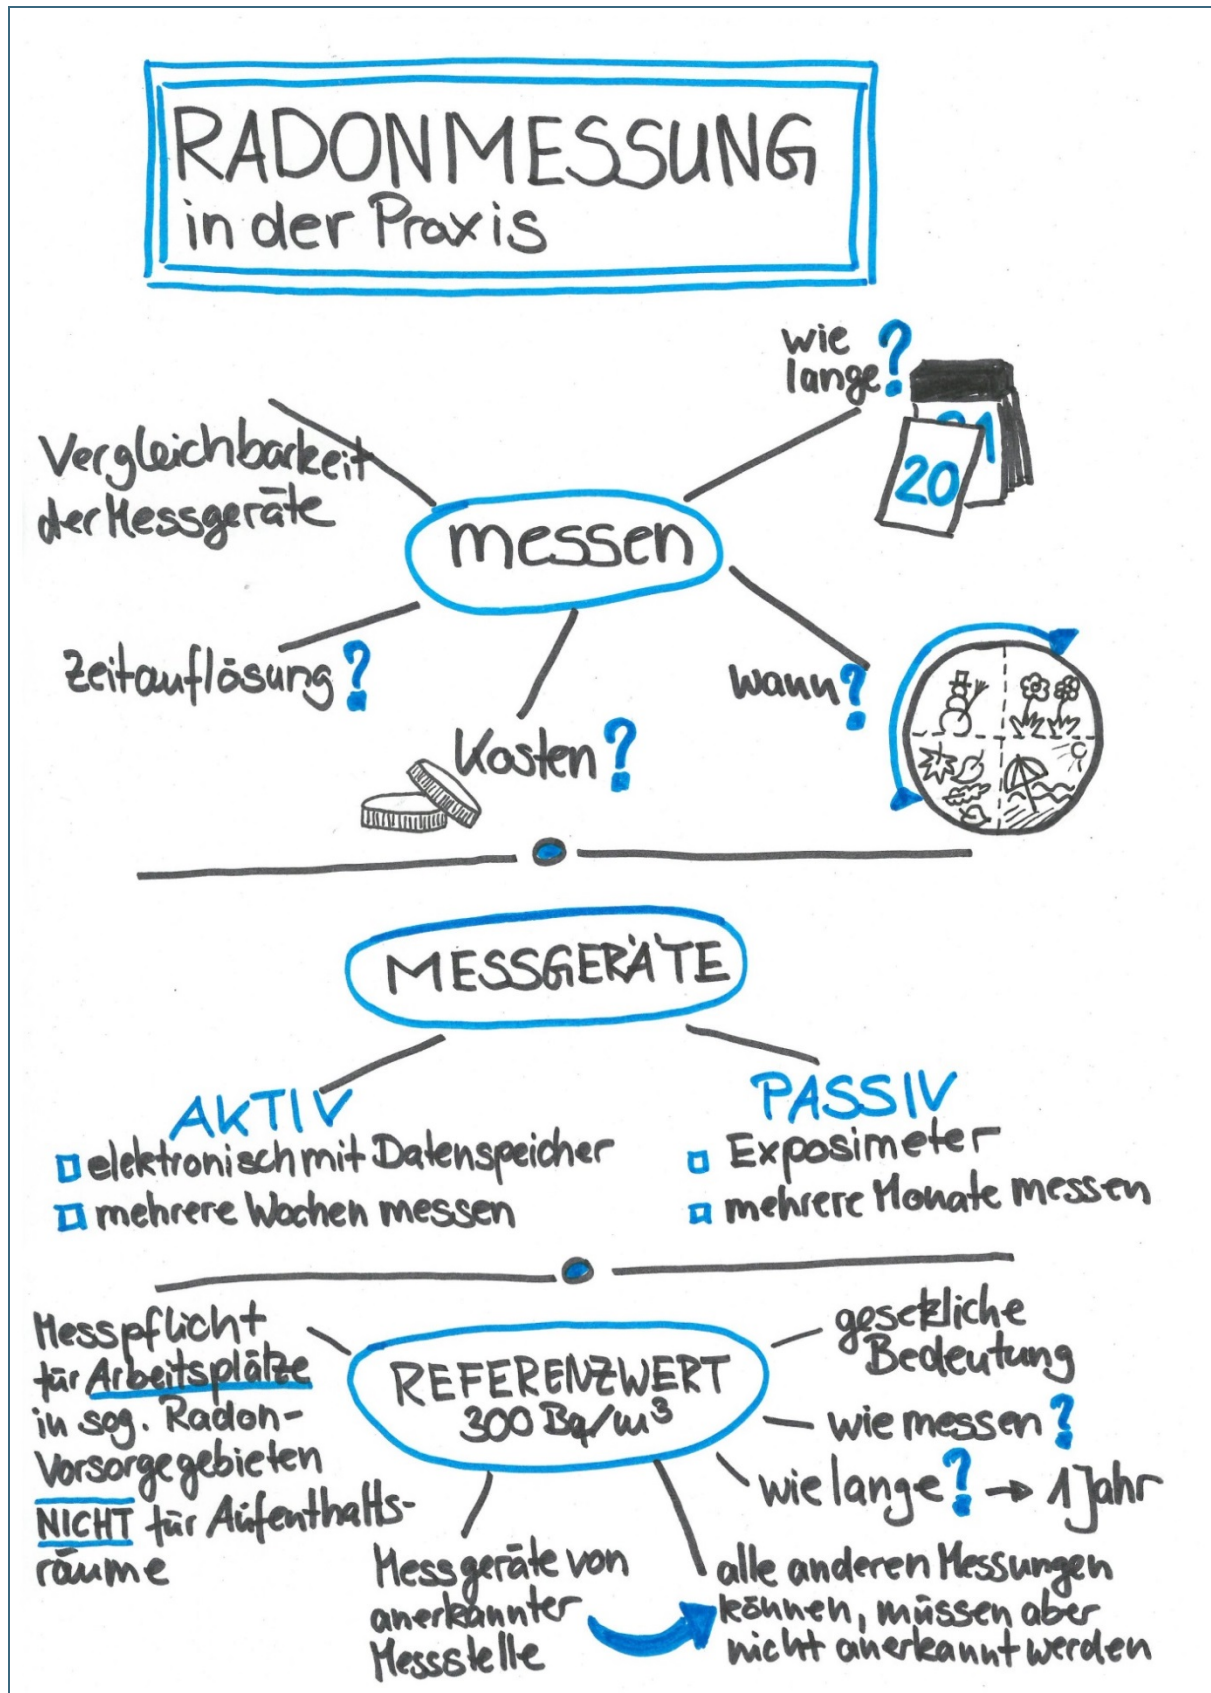 RADONMESSUNG
in der Praxis
wie
lange?
21
20
Vergleichbarkeit
der Messgeräte
messen
Zeitauflösung?
Kosten?
wann?
MESSGERÄTE
AKTIV
elektronisch mit Datenspeicher
mehrere Wochen messen
PASSIV
Exposimeter
mehrere Monate messen
Messpflicht
für Arbeitsplätze
in sog. Radon-
Vorsorgegebieten
NICHT für Aufenthalts-
räume
REFERENZWERT
300 Bq/m³
gesetzliche
Bedeutung
wie messen?
wie lange? → 1 Jahr
Messgeräte von
anerkannter
Messstelle
alle anderen Messungen
können, müssen aber
nicht anerkannt werden